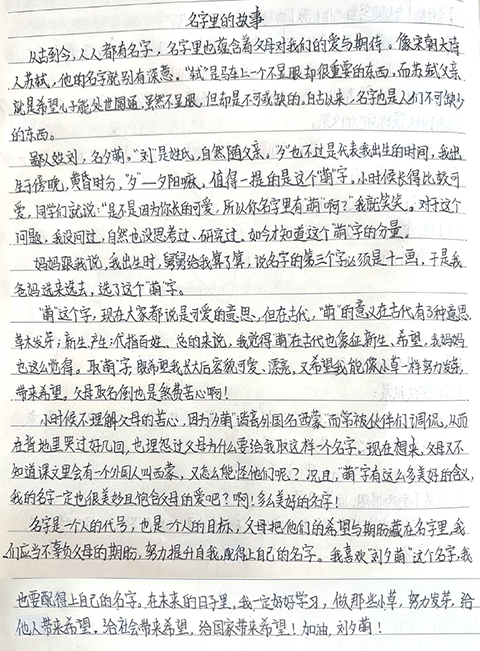 名字里的故事
从古到今，人人都有名字，名字里也蕴含着父母对我们的爱与期待。像宋朝大诗
人苏轼，他的名字就别有深意。“轼”是马车上一个不显眼却很重要的东西，而苏轼父亲
就是希望儿子能处世圆通，虽然不显眼，但却是不可或缺的。自古以来，名字也是人们不可缺少
的东西。
鄙人姓刘，名夕萌。“刘”是姓氏，自然随父亲。“夕”也不过是代表我出生的时间，我出
生于傍晚，黄昏时分，“夕”—夕阳嘛。值得一提的是这个“萌”字。小时候长得比较可
爱，同学们就说：“是不是因为你长的可爱，所以你名字里有‘萌’啊？”我就笑笑。对于这个
问题，我没问过，自然也没思考过、研究过。如今才知道这个“萌”字的分量。
妈妈跟我说，我出生时，舅舅给我算了算，说名字的第三个字必须是十一画，于是我
爸妈选来选去，选了这个“萌”字。
“萌”这个字，现在大家都说是可爱的意思，但在古代，“萌”的意义在古代有3种意思
草木发芽；新生产生；代指百姓。总的来说，我觉得“萌”在古代也象征新生、希望，我妈妈
也这么觉得。取“萌”字，既希望我长大后容貌可爱、漂亮，又希望我能像小草一样努力发芽，
带来希望。父母取名倒也是煞费苦心啊！
小时候不理解父母的苦心，因为“夕萌”谐音外国名“西蒙”而常被伙伴们调侃，从而
在背地里哭过好几回，也埋怨过父母为什么要给我取这样一个名字。现在想来，父母又不
知道课文里会有一个外国人叫西蒙，又怎么能怪他们呢？况且，“萌”字有这么多美好的含义，
我的名字一定也很美妙且饱含父母的爱吧？啊！多么美好的名字！
名字是一个人的代号，也是一个人的目标，父母把他们的希望与期盼藏在名字里，我
们应当不辜负父母的期盼，努力提升自我，配得上自己的名字。我喜欢“刘夕萌”这个名字，我
也要配得上自己的名字。在未来的日子里，我一定好好学习，做那些小草，努力发芽，给
他人带来希望，给社会带来希望，给国家带来希望！加油，刘夕萌！